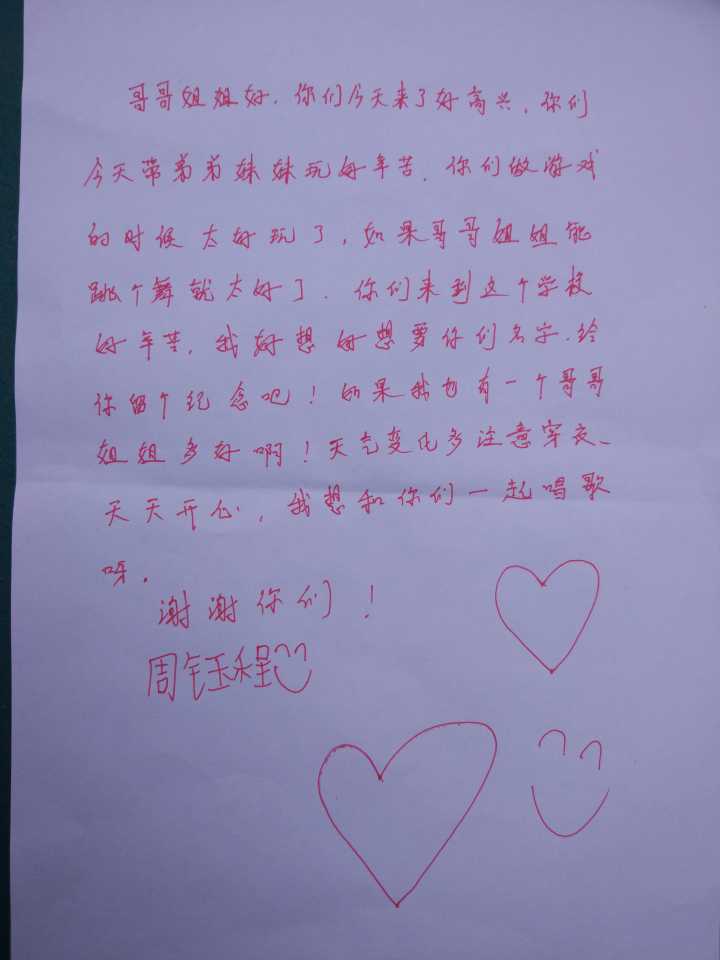 哥哥姐姐好.你们今天来了好高兴.你们
今天带弟弟妹妹玩好辛苦.你们做游戏
的时候太好玩了,如果哥哥姐姐能
跳个舞就太好了.你们来到这个学校
好辛苦,我好想好想要你们名字.给
你留个纪念吧!如果我也有一个哥哥
姐姐多好啊!天气变化多注意穿衣、
天天开心,我想和你们一起唱歌
呀.
谢谢你们!
周钰程